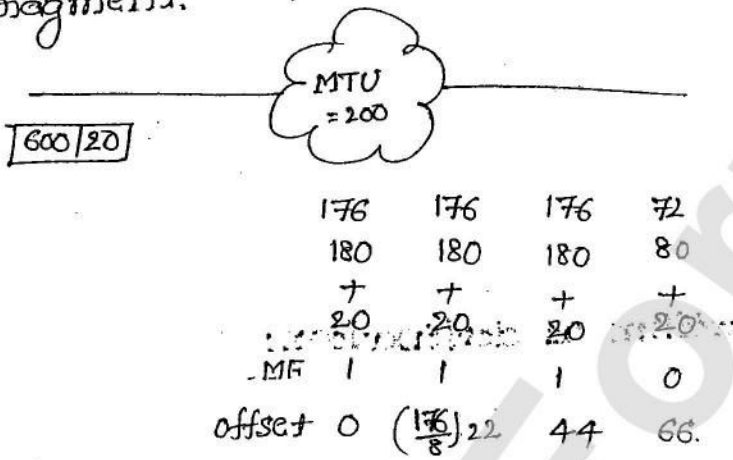 fragment.
MTU
= 200
600 20
176 176 176 72
180 180 180 80
+ + + +
20 20 20 20
MF 1 1 1 0
offset 0 (176/8) 22 44 66.